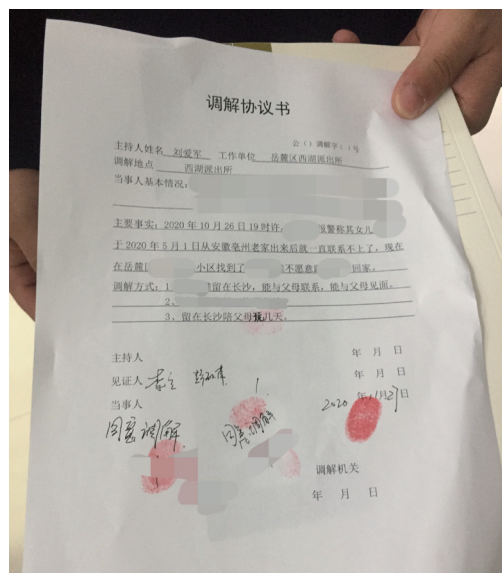 调解协议书
公（）调解字（ ）号
主持人姓名 刘爱军 工作单位 岳麓区西湖派出所
调解地点 西湖派出所
当事人基本情况：
主要事实：2020年10月26日19时许， 报警称其女儿
于2020年5月1日从安徽亳州老家出来后就一直联系不上了，现在
在岳麓区 小区找到了 不愿意 回家。
调解方式：1、 留在长沙，能与父母联系，能与父母见面。
2、
3、留在长沙陪父母玩几天。
主持人 年 月 日
见证人 年 月 日
当事人 2020年 月27日
同意调解 同意调解
调解机关
年 月 日